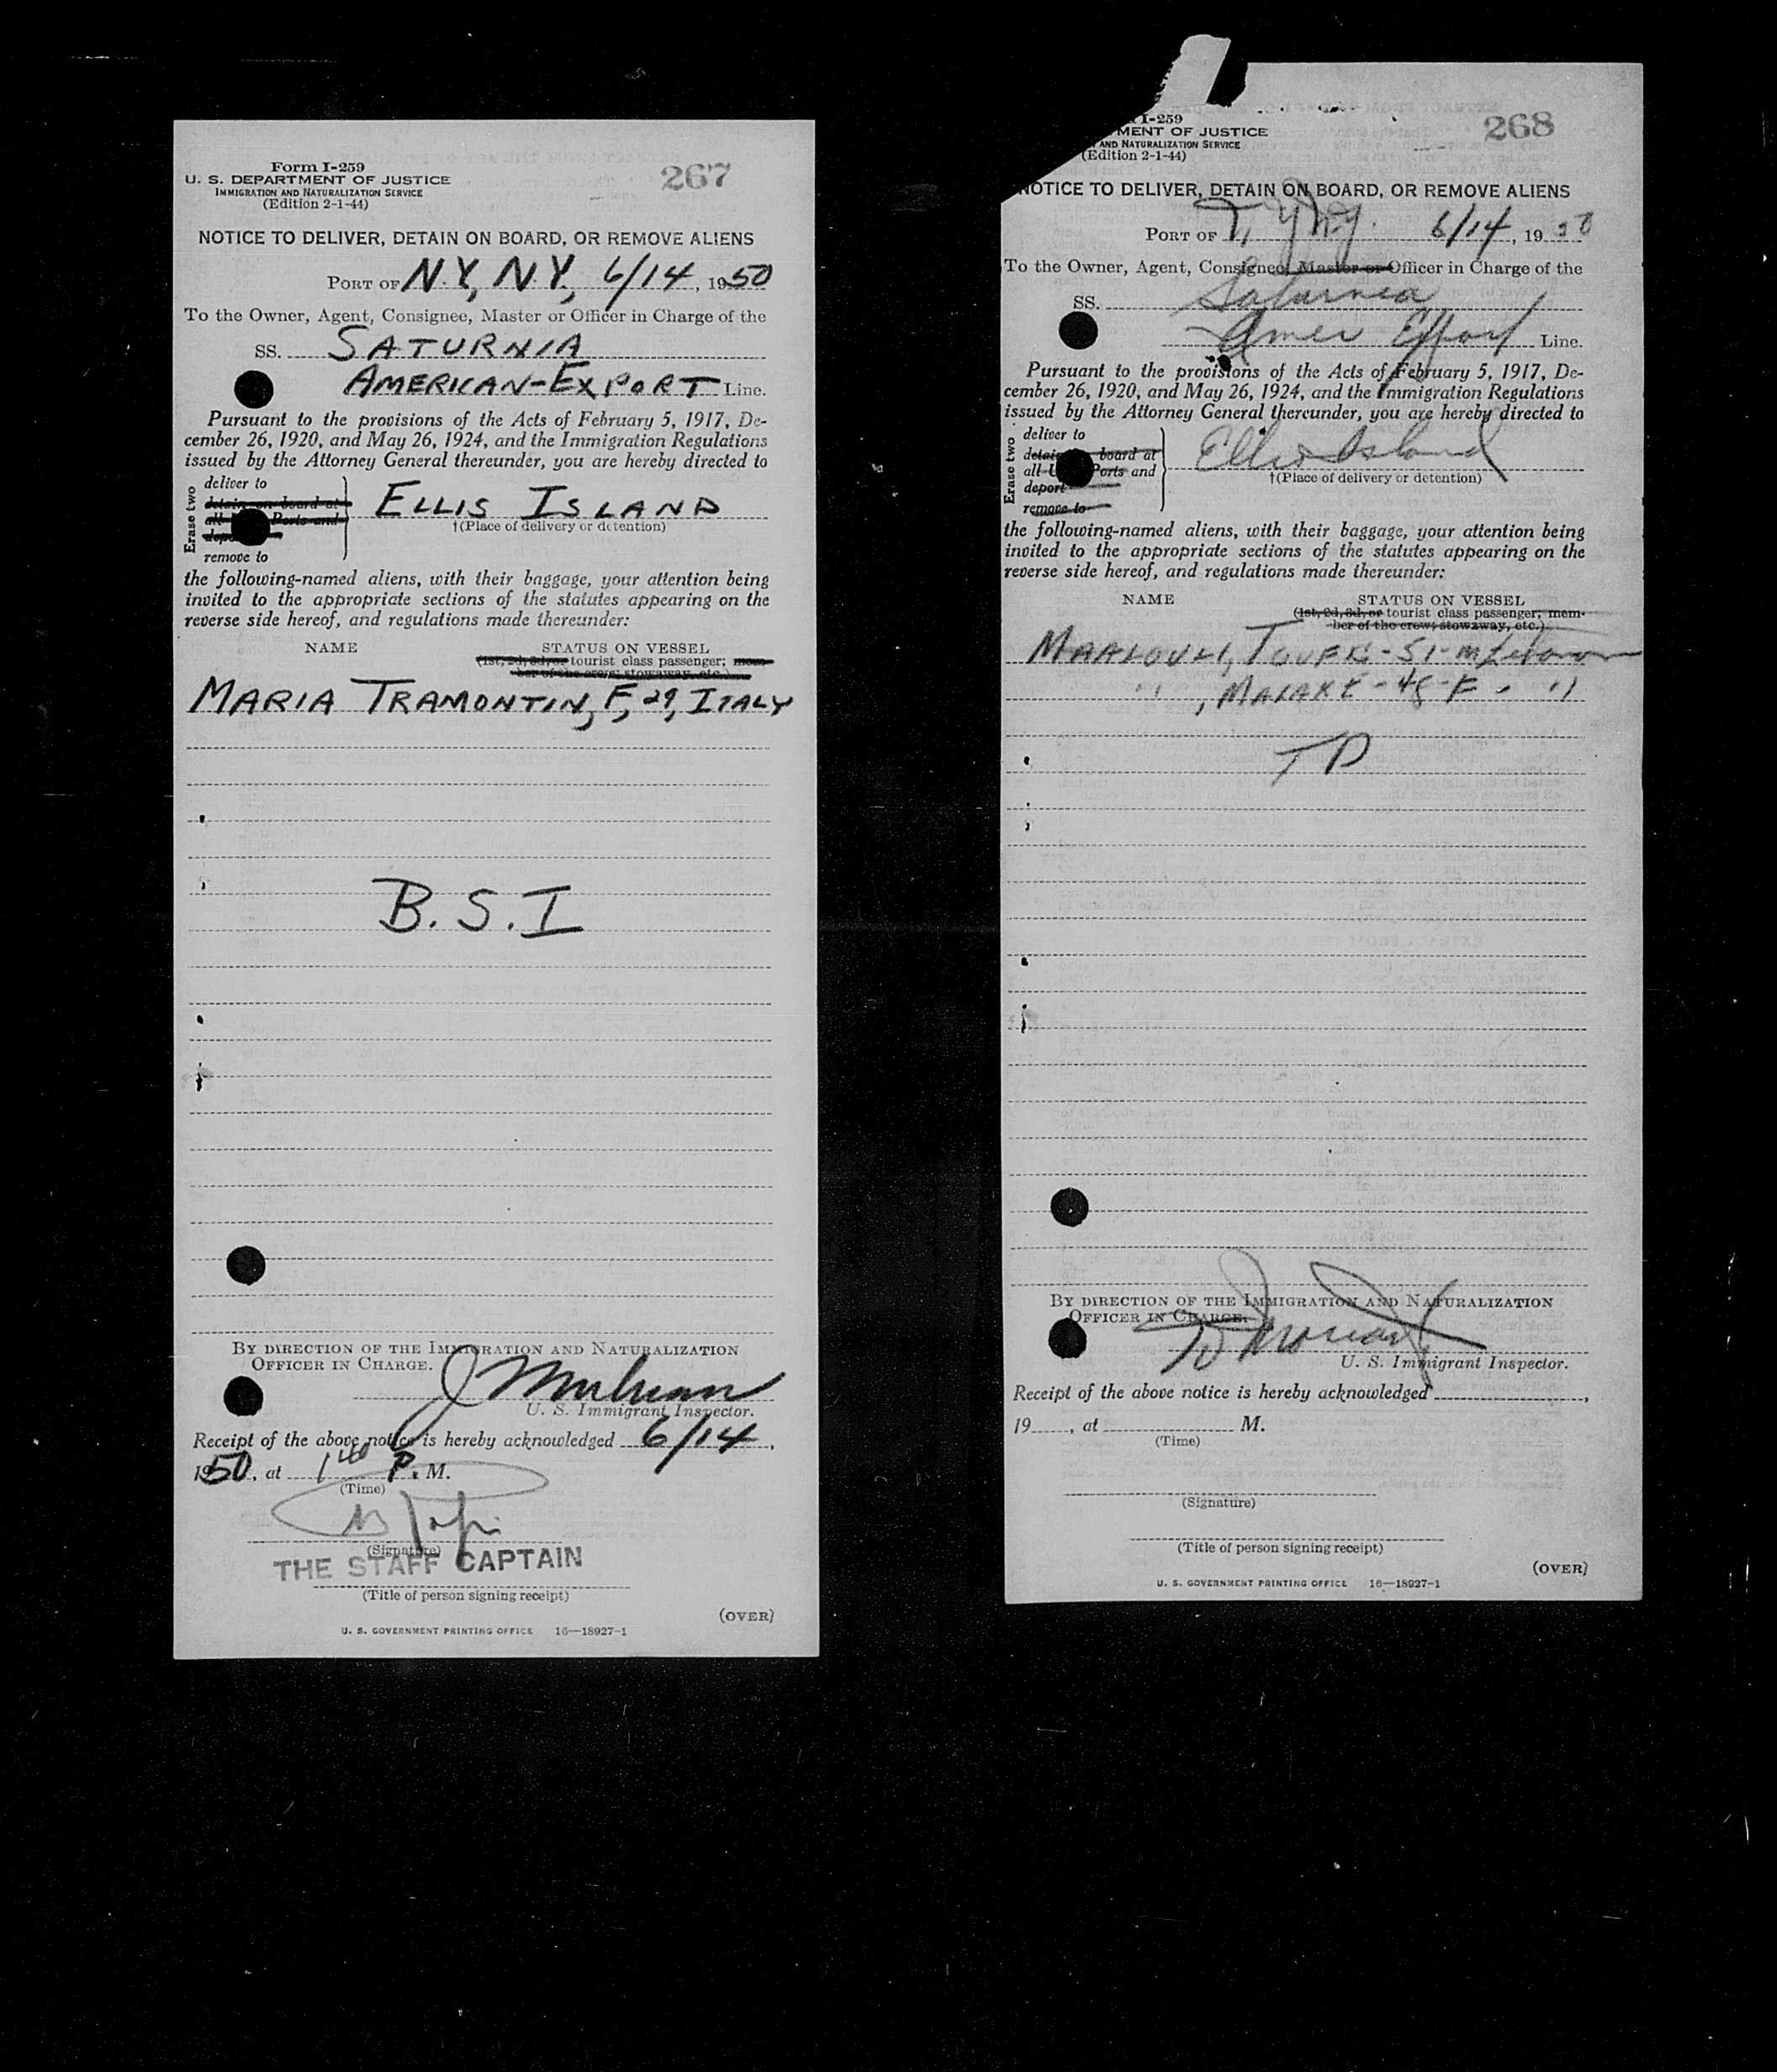 Form I-259
267
U. S. DEPARTMENT OF JUSTICE
IMMIGRATION AND NATURALIZATION SERVICE
(Edition 2-1-44)
NOTICE TO DELIVER, DETAIN ON BOARD, OR REMOVE ALIENS
PORT OF N.Y., N.Y., 6/14, 1950
To the Owner, Agent, Consignee, Master or Officer in Charge of the
SS. SATURNIA
AMERICAN-EXPORT Line.
Pursuant to the provisions of the Acts of February 5, 1917, De-
cember 26, 1920, and May 26, 1924, and the Immigration Regulations
issued by the Attorney General thereunder, you are hereby directed to
Erase two
deliver to
detain on board at
all Ports and
remove to
ELLIS ISLAND
†(Place of delivery or detention)
the following-named aliens, with their baggage, your attention being
invited to the appropriate sections of the statutes appearing on the
reverse side hereof, and regulations made thereunder:
NAME STATUS ON VESSEL
(1st, 2d, 3d, or tourist class passenger; mem-
ber of the crew; stowaway, etc.)
MARIA TRAMONTIN, F, 29, ITALY
B.S.I
BY DIRECTION OF THE IMMIGRATION AND NATURALIZATION
OFFICER IN CHARGE.
U. S. Immigrant Inspector.
Receipt of the above notice is hereby acknowledged 6/14,
1950, at 1 40 P. M.
(Time)
(Signature)
THE STAFF CAPTAIN
(Title of person signing receipt)
(OVER)
U. S. GOVERNMENT PRINTING OFFICE 16—18927-1
I-259
268
MENT OF JUSTICE
AND NATURALIZATION SERVICE
(Edition 2-1-44)
NOTICE TO DELIVER, DETAIN ON BOARD, OR REMOVE ALIENS
PORT OF 6/14, 1950
To the Owner, Agent, Consignee, Master or Officer in Charge of the
SS. Saturnia
Amer Export Line.
Pursuant to the provisions of the Acts of February 5, 1917, De-
cember 26, 1920, and May 26, 1924, and the Immigration Regulations
issued by the Attorney General thereunder, you are hereby directed to
Erase two
deliver to
detain board at
all U Ports and
deport
remove to
Ellis Island
†(Place of delivery or detention)
the following-named aliens, with their baggage, your attention being
invited to the appropriate sections of the statutes appearing on the
reverse side hereof, and regulations made thereunder:
NAME STATUS ON VESSEL
(1st, 2d, 3d, or tourist class passenger; mem-
ber of the crew; stowaway, etc.)
TOUFK - 51 - m Lebanon
" , MALAKE - 48 - F - "
TD
BY DIRECTION OF THE IMMIGRATION AND NATURALIZATION
OFFICER IN CHARGE.
U. S. Immigrant Inspector.
Receipt of the above notice is hereby acknowledged ,
19 , at M.
(Time)
(Signature)
(Title of person signing receipt)
(OVER)
U. S. GOVERNMENT PRINTING OFFICE 16—18927-1